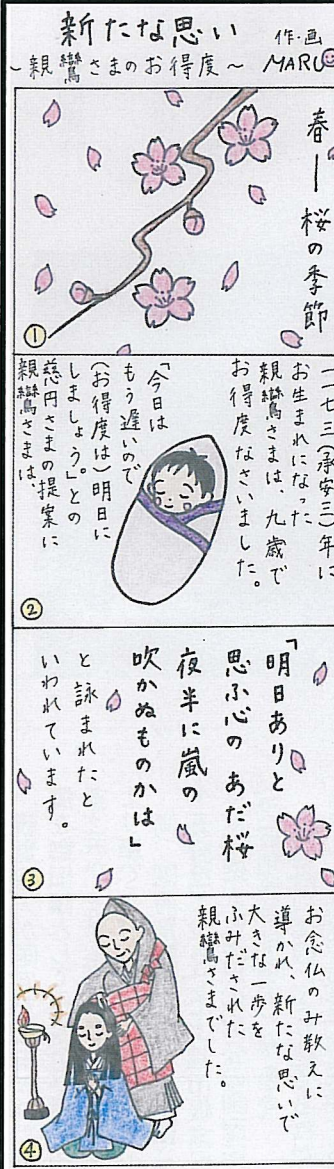 新たな思い
~親鸞さまのお得度~
作・画
MARU
春ー桜の季節
①
一一七三(承安三)年に
お生まれになった
親鸞さまは、九歳で
お得度なさいました。
「今日は
もう遅いので
(お得度は)明日に
しましょう。」との
慈円さまの提案に
親鸞さまは、
②
「明日ありと
思ふ心の あだ桜
夜半に嵐の
吹かぬものかは」
と詠まれたと
いわれています。
③
お念仏のみ教えに
導かれ、新たな思いで
大きな一歩を
ふみだされた
親鸞さまでした。
④